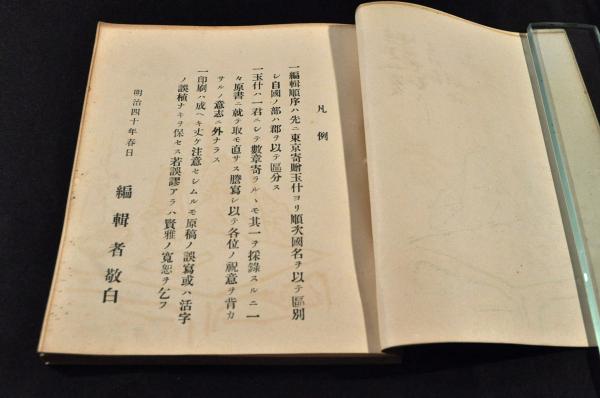 凡例
一編輯順序ハ先ニ東京寄贈玉什ヨリ順次國名ヲ以テ區別
シ自國ノ部ハ郡ヲ以テ區分ス
一玉什ハ一君ニシテ數章寄ラルヽモ其一ヲ採錄スルニ一
々原書ニ就テ取モ直サス謄寫シ以テ各位ノ祝意ヲ背カ
サルノ意志ニ外ナラス
一印刷ハ成ヘキ丈ケ注意セシムルモ原稿ノ誤寫或ハ活字
ノ誤植ナキヲ保セス若誤謬アラハ賢雅ノ寬恕ヲ乞フ
明治四十年春日
編輯者敬白